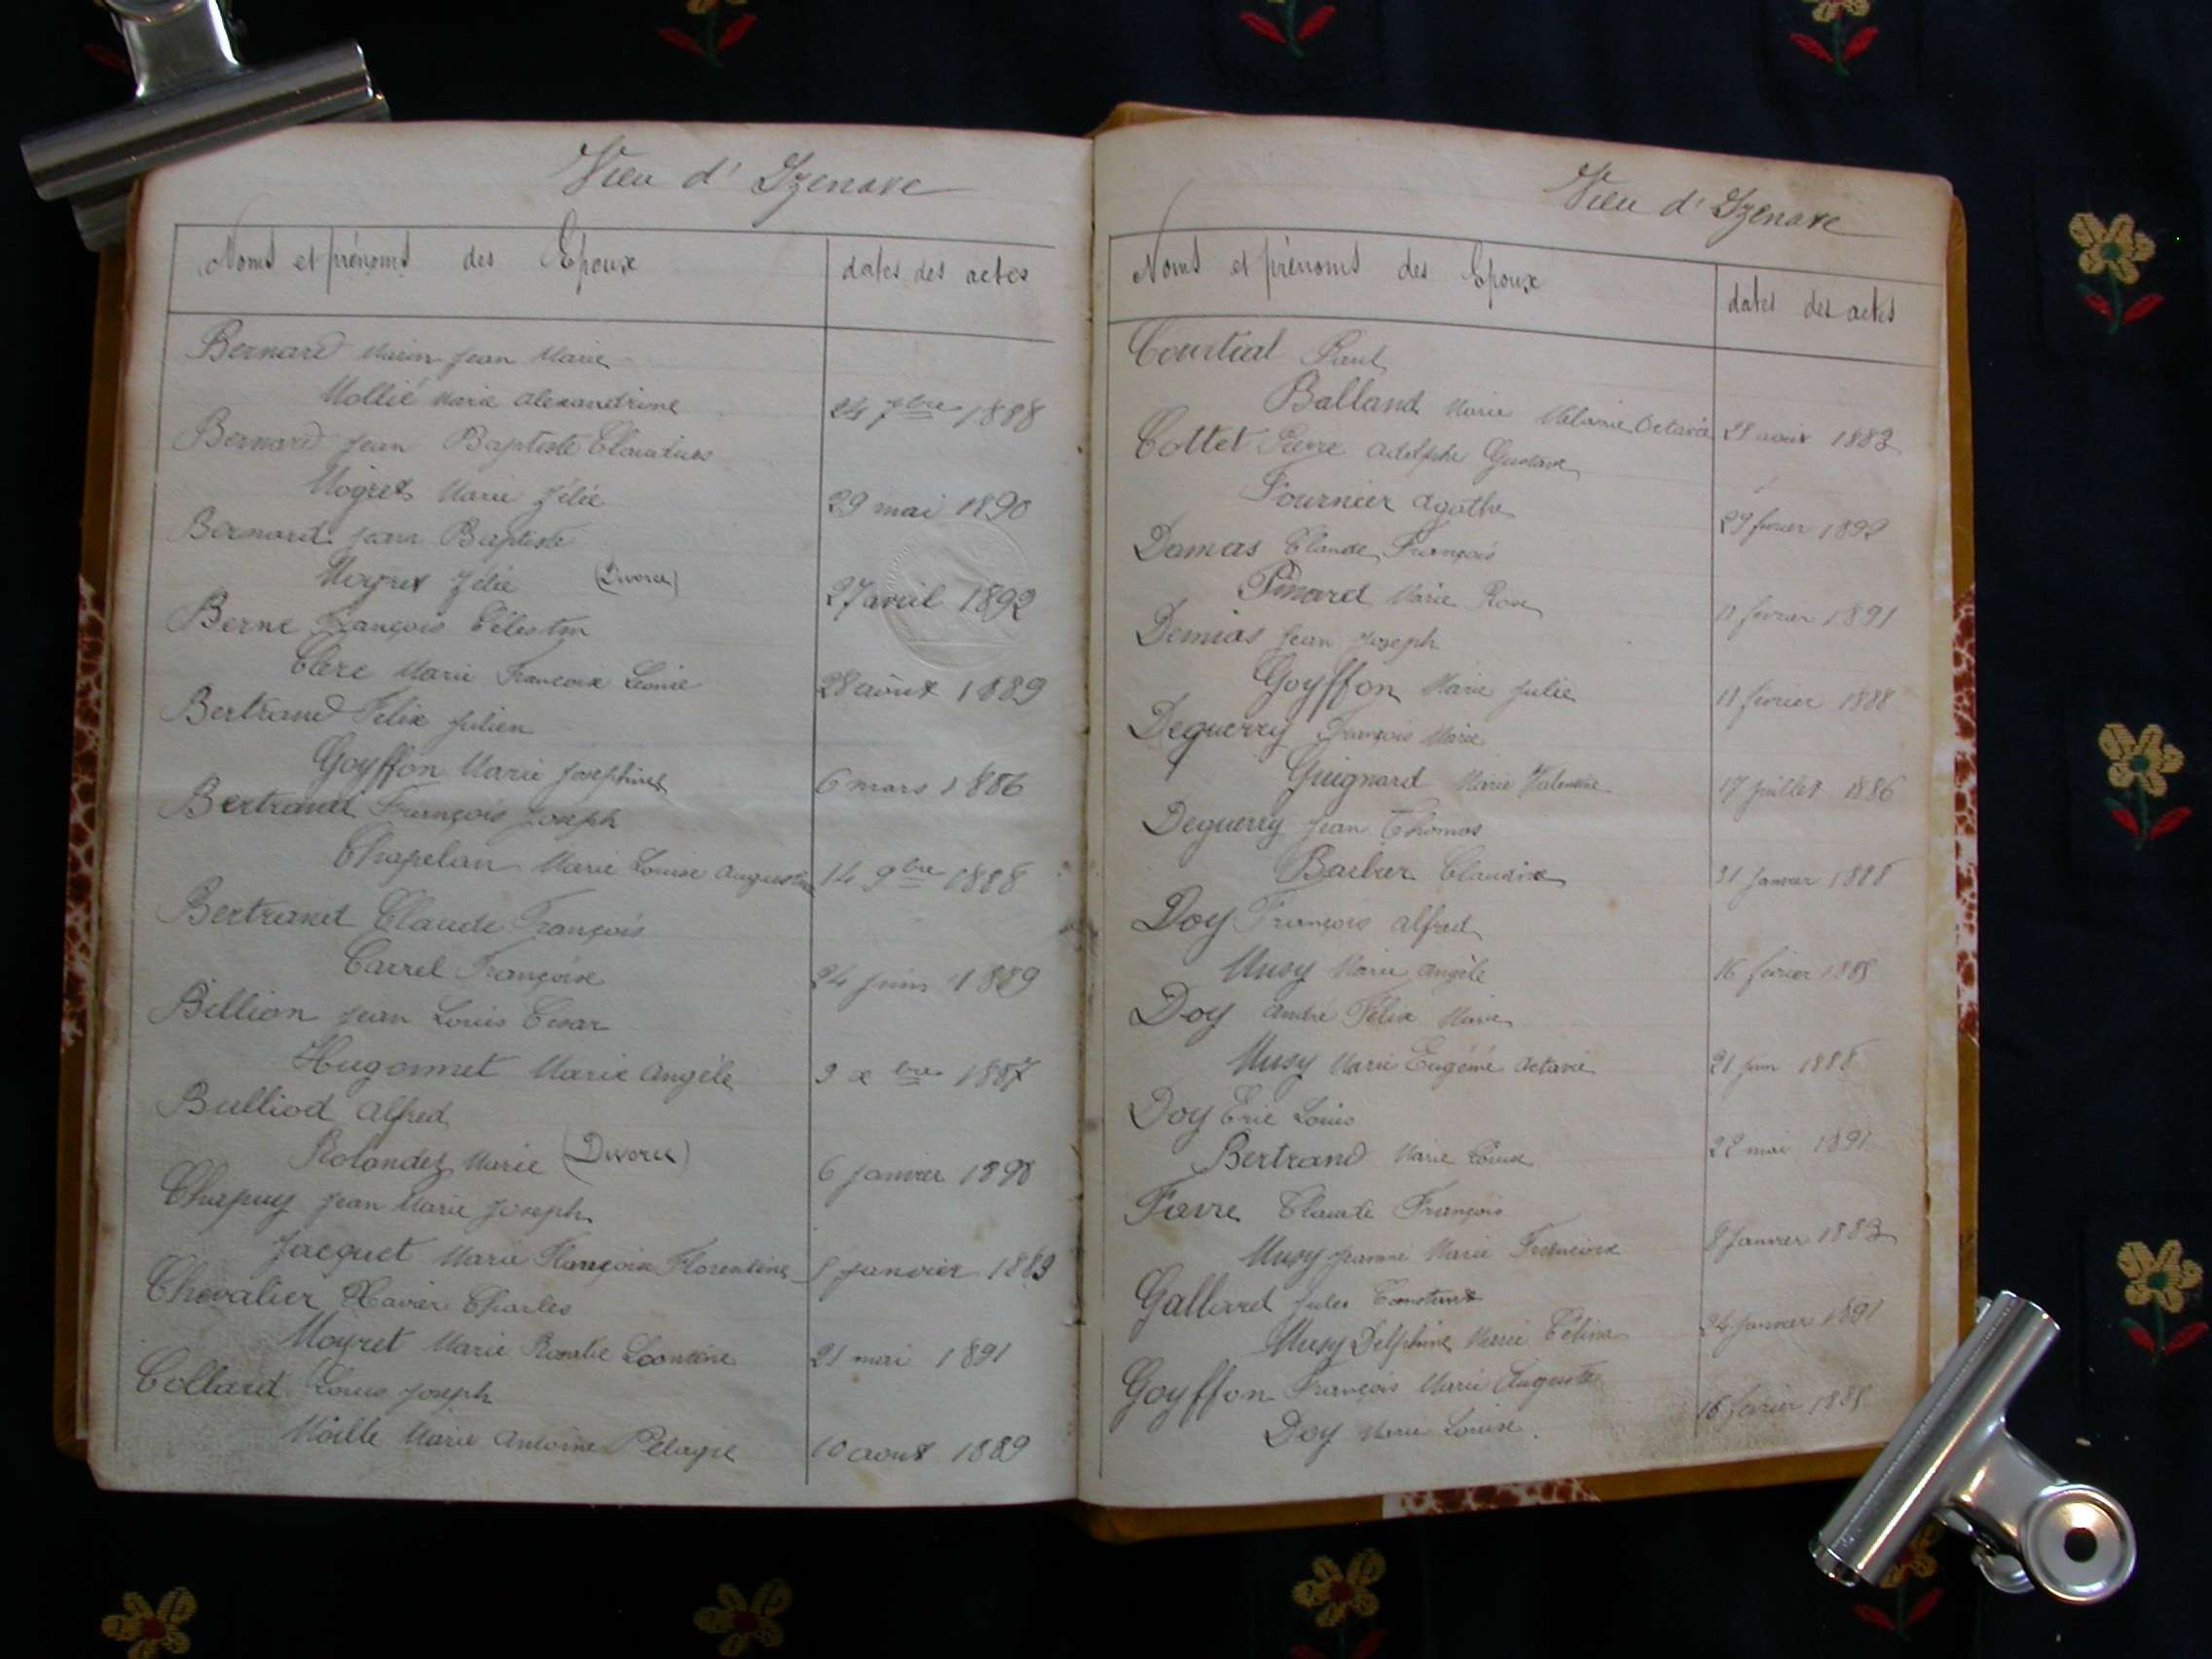 Vieu d'Izenave
Noms et prénoms des Epoux dates des actes
Bernard Marin Jean Marie
Mollié Marie Alexandrine 24 7bre 1888
Bernard Jean Baptiste Claudius
Mogret Marie Zélie 29 mai 1890
Bernard Jean Baptiste
Moyret Zélie (Divorce) 27 avril 1892
Berne François Célestin
Clerc Marie Françoise Léonie 28 août 1889
Bertrand Félix Julien
Goyffon Marie Josephine 6 mars 1886
Bertrand François Joseph
Chapelan Marie Louise Augustine 14 9bre 1888
Bertrand Claude François
Carrel Françoise 24 juin 1889
Billion Jean Louis César
Hugonnet Marie Angèle 3 xbre 1887
Bulliod Alfred
Rolandez Marie (Divorce) 6 janvier 1890
Chapuy Jean Marie Joseph
Jacquet Marie Françoise Florentine janvier 1889
Chevalier Xavier Charles
Moyret Marie Rosalie Léontine 21 mai 1891
Collard Louis Joseph
Marie Antoine Pélagie 10 aout 1889
Vieu d'Izenave
Noms et prénoms des Epoux dates des actes
Courtial Paul
Balland Marie Mélanie Octavie 28 aout 1883
Cottet Pierre Adolphe Gustave
Fournier Agathe 29 fevrier 1892
Damas Claude François
Pinard Marie Rose fevrier 1891
Demias Jean Joseph
Goyffon Marie Julie 11 février 1888
Deguerry François Marie
Guignard Marie Valentine 17 juillet 1886
Deguerry Jean Thomas
Barbier Claudine 31 janvier 1888
Doy François Alfred
Musy Marie Angèle 16 février
Doy André Félix Marie
Musy Marie Eugénie Octavie 21 juin 1888
Doy Eric Louis
Bertrand Marie Louise 28 mai 1891
Favre Claude François
Musy Jeanne Marie Françoise 8 Janvier 1883
Gallard Jules Constant
Musy Delphine Marie Célina 24 Janvier 1891
Goyffon François Marie Auguste
Doy Marie Louise. 16 février